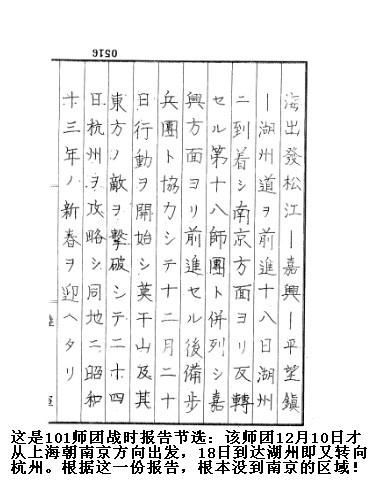 0516
海出發松江ー嘉興ー平望鎮
ー湖州道ヲ前進十八日湖州
ニ到着シ南京方面ヨリ反轉
セル第十八師團ト併列シ嘉
興方面ヨリ前進セル後備歩
兵團ト協力シテ十二月二十
日行動ヲ開始シ莫干山及其
東方ノ敵ヲ撃破シテ二十四
日杭州ヲ攻略シ同地ニ昭和
十三年ノ新春ヲ迎ヘタリ
这是101师团战时报告节选：该师团12月10日才
从上海朝南京方向出发，18日到达湖州即又转向
杭州。根据这一份报告，根本没到南京的区域！